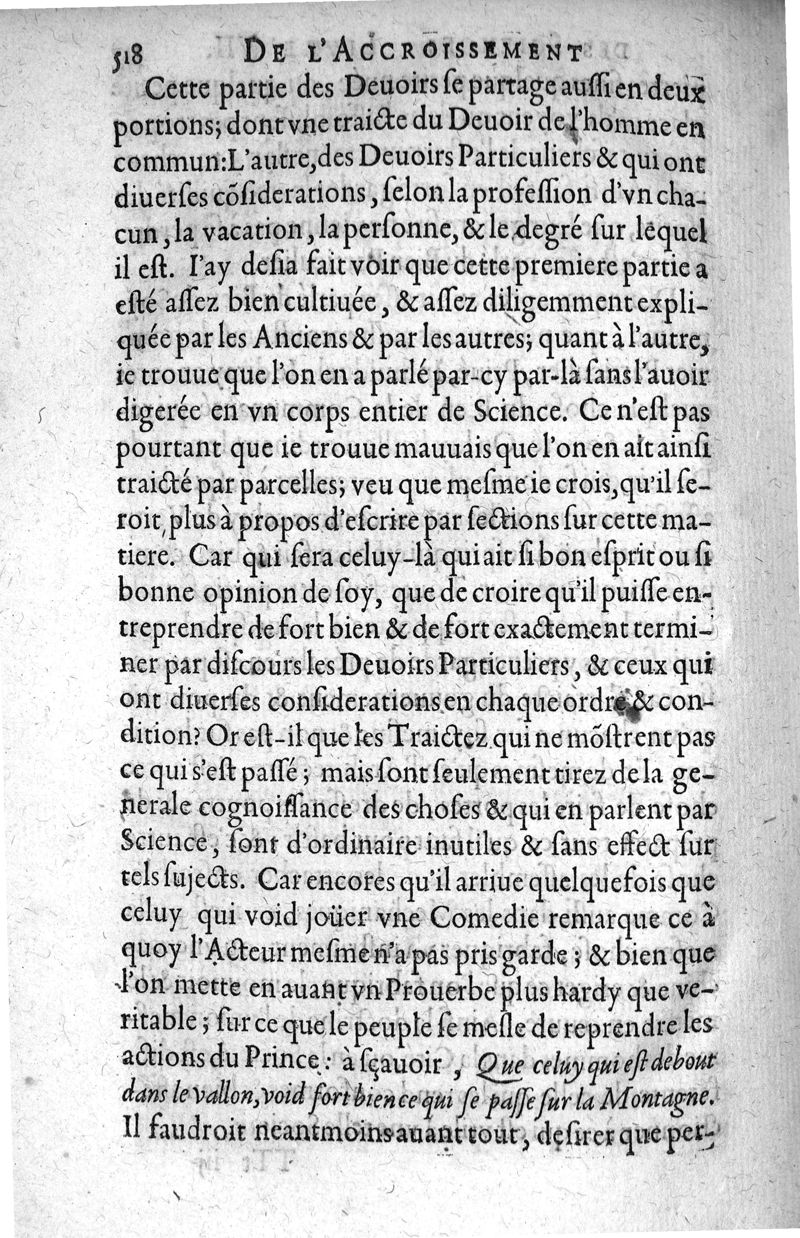 518 DE L'ACCROISSEMENT
Cette partie des Deuoirs ſe partage auſſi en deux
portions; dont vne traicte du Deuoir de l'homme en
commun: L'autre, des Deuoirs Particuliers & qui ont
diuerſes cõſiderations, ſelon la profeſſion d'vn cha-
cun, la vacation, la perſonne, & le degré ſur lequel
il eſt. I'ay deſia fait voir que cette premiere partie a
eſté aſſez bien cultiuée, & aſſez diligemment expli-
quée par les Anciens & par les autres; quant à l'autre,
ie trouue que l'on en a parlé par-cy par-là ſans l'auoir
digerée en vn corps entier de Science. Ce n'eſt pas
pourtant que ie trouue mauuais que l'on en ait ainſi
traicté par parcelles; veu que meſme ie crois, qu'il ſe-
roit plus à propos d'eſcrire par ſections ſur cette ma-
tiere. Car qui ſera celuy-là qui ait ſi bon eſprit ou ſi
bonne opinion de ſoy, que de croire qu'il puiſſe en-
treprendre de fort bien & de fort exactement termi-
ner par diſcours les Deuoirs Particuliers, & ceux qui
ont diuerſes conſiderations en chaque ordre & con-
dition? Or eſt-il que les Traictez qui ne mõſtrent pas
ce qui s'eſt paſſé; mais ſont ſeulement tirez de la ge-
nerale cognoiſſance des choſes & qui en parlent par
Science, ſont d'ordinaire inutiles & ſans effect ſur
tels ſujects. Car encores qu'il arriue quelquefois que
celuy qui void joüer vne Comedie remarque ce à
quoy l'Acteur meſme n'a pas pris garde; & bien que
l'on mette en auant vn Prouerbe plus hardy que ve-
ritable; ſur ce que le peuple ſe meſle de reprendre les
actions du Prince: à sçauoir, Que celuy qui eſt debout
dans le vallon, void fort bien ce qui ſe paſſe ſur la Montagne.
Il faudroit neantmoins auant tout, deſirer que per-